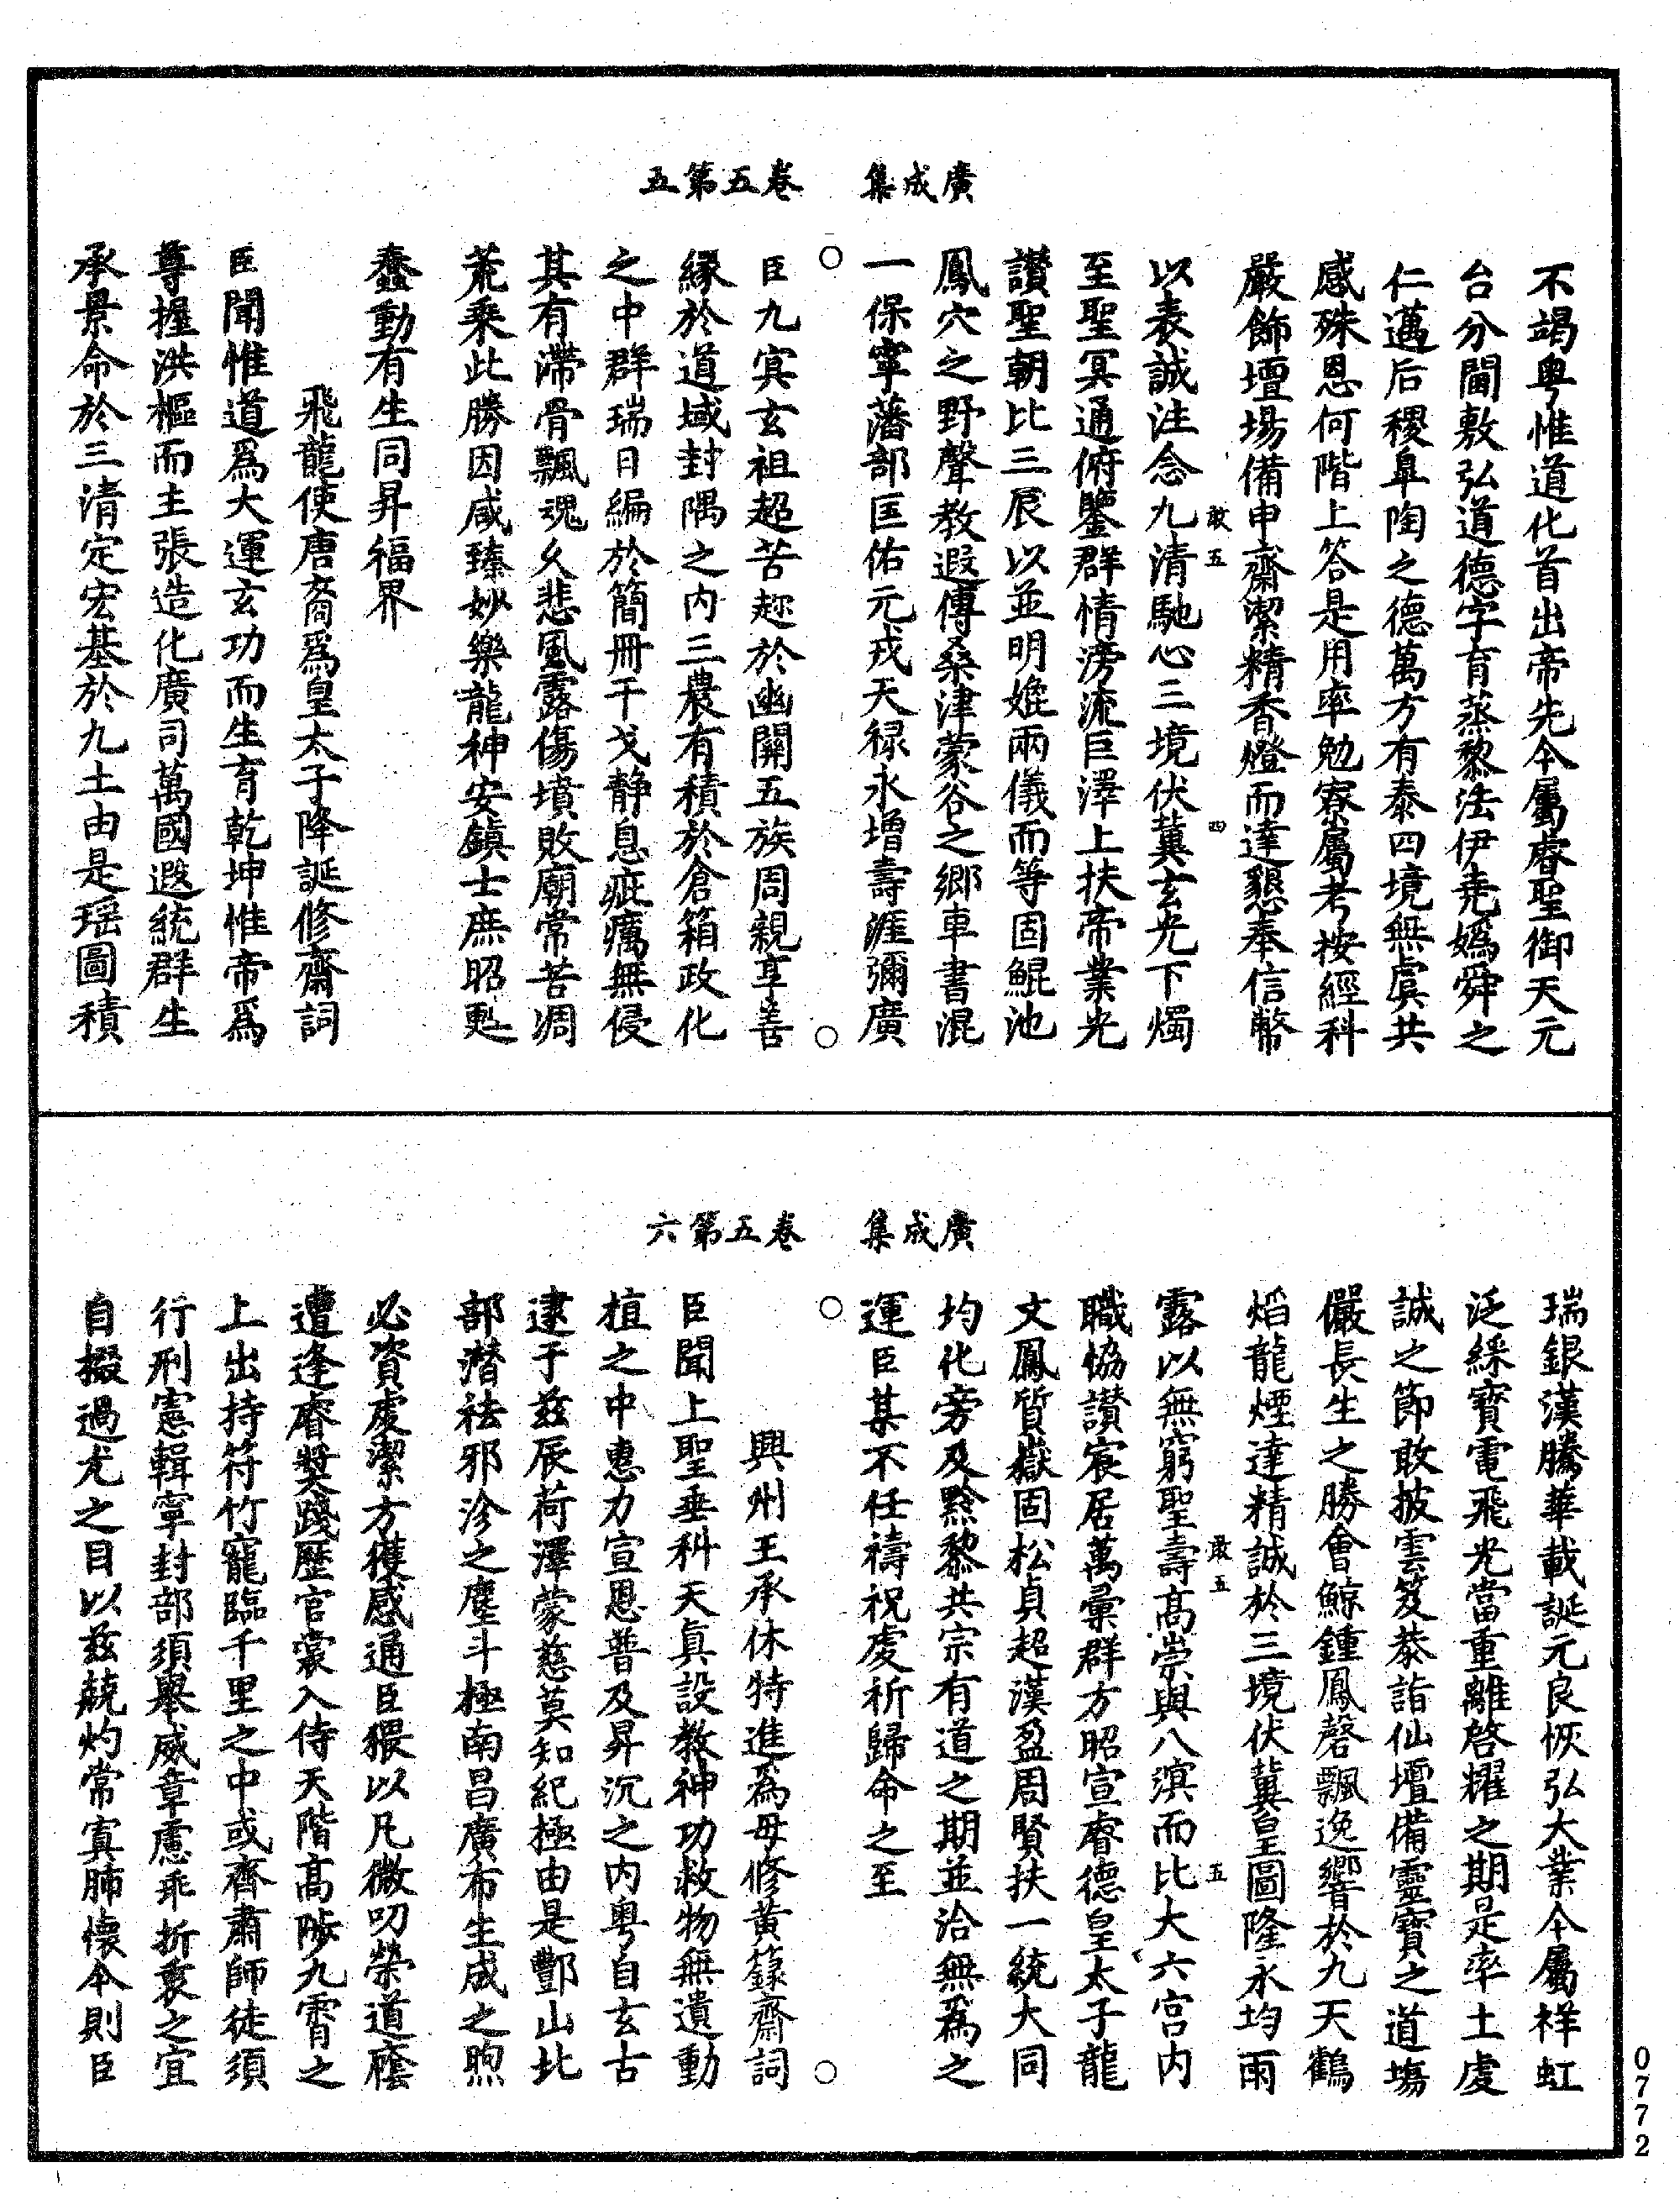 廣成集 卷五第五
不竭粤惟道化首出帝先今屬睿聖御天元
台分閫敷弘道德字育蒸黎法伊堯嬀舜之
仁邁后稷臯陶之德萬方有泰四境無虞共
感殊恩何階上答是用率勉寮屬考按經科
嚴飾壇場備申齋潔精香燈而達懇奉信幣
敢五 四
以表誠注念九清馳心三境伏冀玄光下燭
至聖冥通俯鑒群情滂流巨澤上扶帝業光
讃聖朝比三辰以並明媲兩儀而等固鯤池
鳳穴之野聲教遐傳桑津蒙谷之鄉車書混
一保寧藩部匡佑元戎天禄永增壽涯彌廣
臣九㝠玄祖超苦趂於幽關五族周親享善
緣於道域封隅之内三農有積於倉箱政化
之中群瑞日編於簡冊干戈静息疵癘無侵
其有滯骨飄魂久悲風露傷墳敗廟常苦凋
荒乘此勝因咸臻妙樂龍神安鎮士庶昭甦
蠢動有生同昇福界
飛龍使唐裔爲皇太子降誕修齋詞
臣聞惟道爲大運玄功而生育乾坤惟帝爲
尊握洪樞而主張造化廣司萬國遐統群生
承景命於三清定宏基於九土由是瑶圖積
廣成集 卷五第六
瑞銀漢騰華載誕元良恢弘大業今屬祥虹
泛綵寶電飛光當重離啓耀之期是率土虔
誠之節敢披雲笈恭詣仙壇備靈寶之道場
儼長生之勝會鯨鍾鳳磬飄逸響於九天鶴
焰龍煙達精誠於三境伏冀皇圖隆永均雨
敢五 五
露以無窮聖壽高崇與八溟而比大六宫内
職恊讃宸居萬彙群方昭宣睿德皇太子龍
文鳳質嶽固松貞超漢盈周賢扶一統大同
均化旁及黔黎共宗有道之期並洽無爲之
運臣某不任禱祝虔祈歸命之至
興州王承休特進爲母修黄籙齋詞
臣聞上聖垂科天真設教神功救物無遺動
植之中惠力宣恩普及昇沉之内粤自玄古
逮于兹辰荷澤蒙慈莫知紀極由是酆山北
部潛袪邪沴之塵斗極南昌廣布生成之煦
必資虔潔方獲感通臣猥以凡微叨榮道廕
遭逢睿奬踐歷官裳入侍天階高陟九霄之
上出持符竹寵臨千里之中或齊肅師徒須
行刑憲輯寧封部須舉威章慮乖折衷之宜
自掇過尤之目以兹兢灼常寘肺懷今則臣
0772